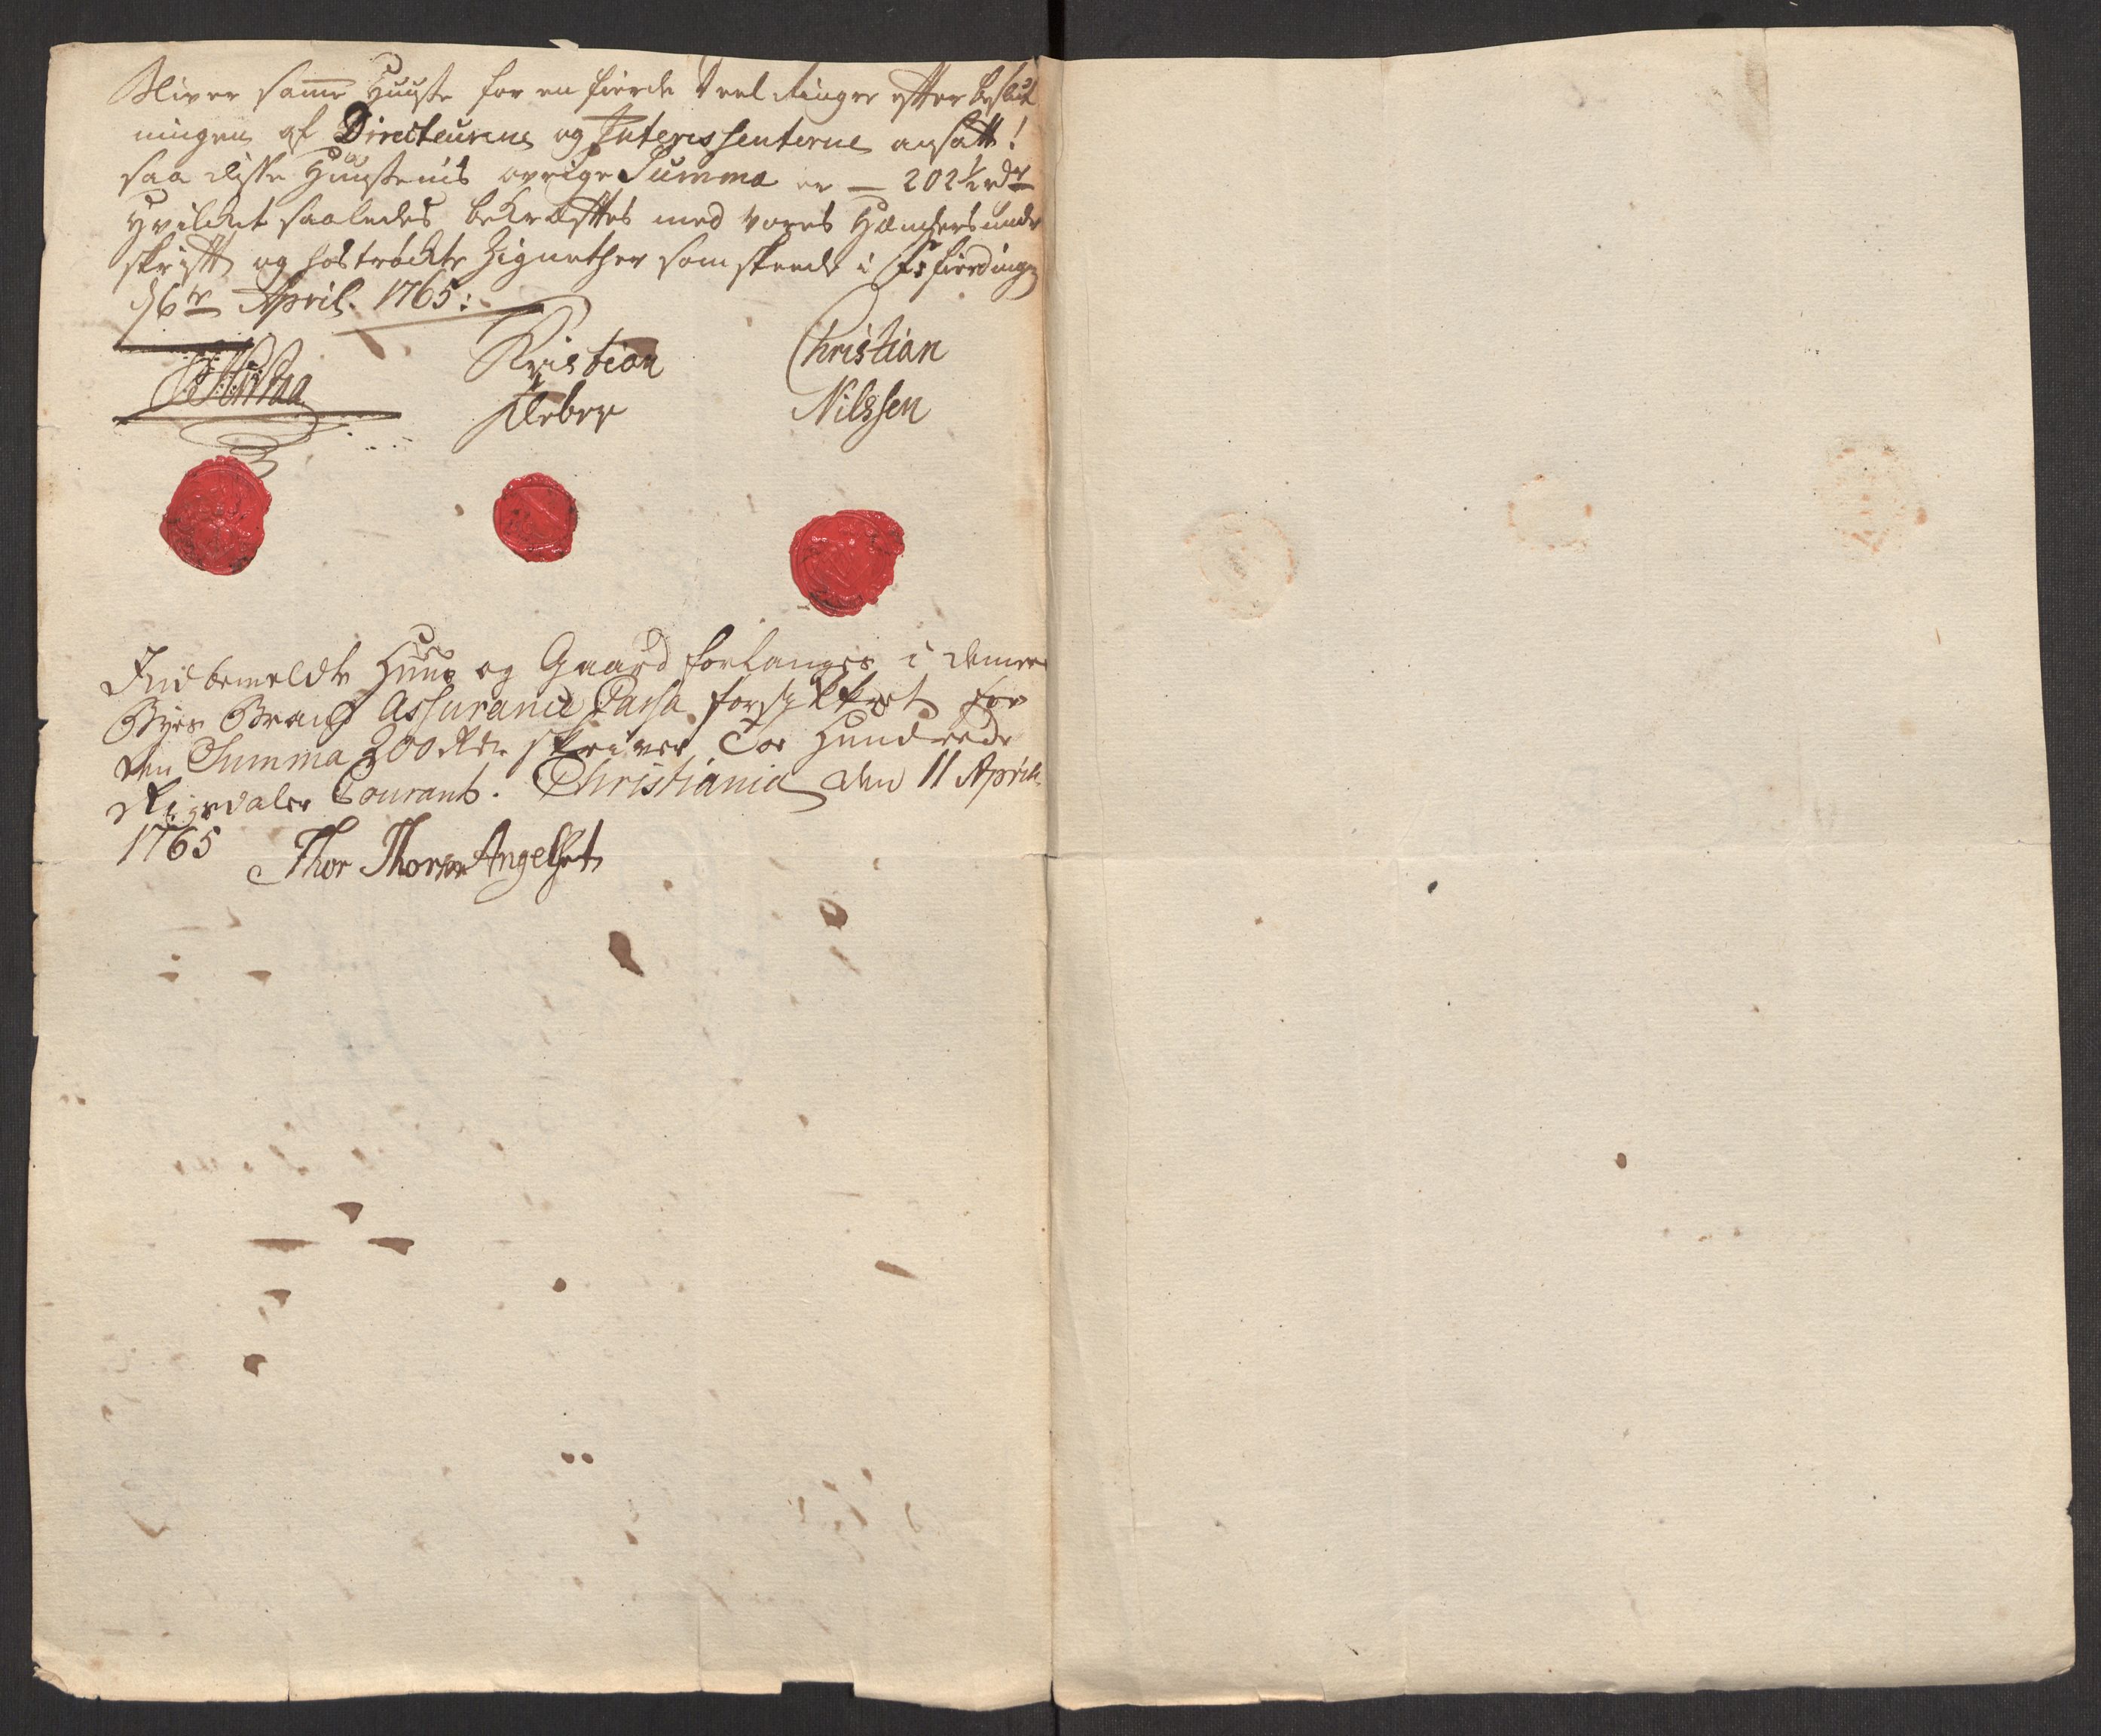 Bliver samme Huuse for en fierde deel Ringere efter beslut
ningen af Directeurene og Interessenterne ansatt!
saa disse Huusenis øvrige Summa er — 202½ rdr
Hvilket saaledes bekræftes med vores Hænders under
skrift og hostrøckte Zignether som skeede i
d 6te April. 1765:
Kristian Christian
Kleber Nilssen
Indbemeldte Huus og Gaard forlanges i denne
Byes Brand Assurance Cassa forsikkret for
den Summa 200 Rdr skriver Toe Hundrede
Rigsdaler Courant. Christiania den 11 April
1765 Thor Thorsen Angelset